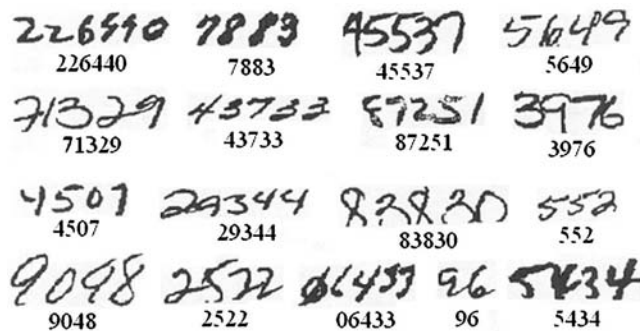 226440 7883 45537 5649
226440 7883 45537 5649
71329 43733 87251 3976
71329 43733 87251 3976
4507 29344 83830 552
4507 29344 83830 552
9098 2522 06433 96 5434
9048 2522 06433 96 5434